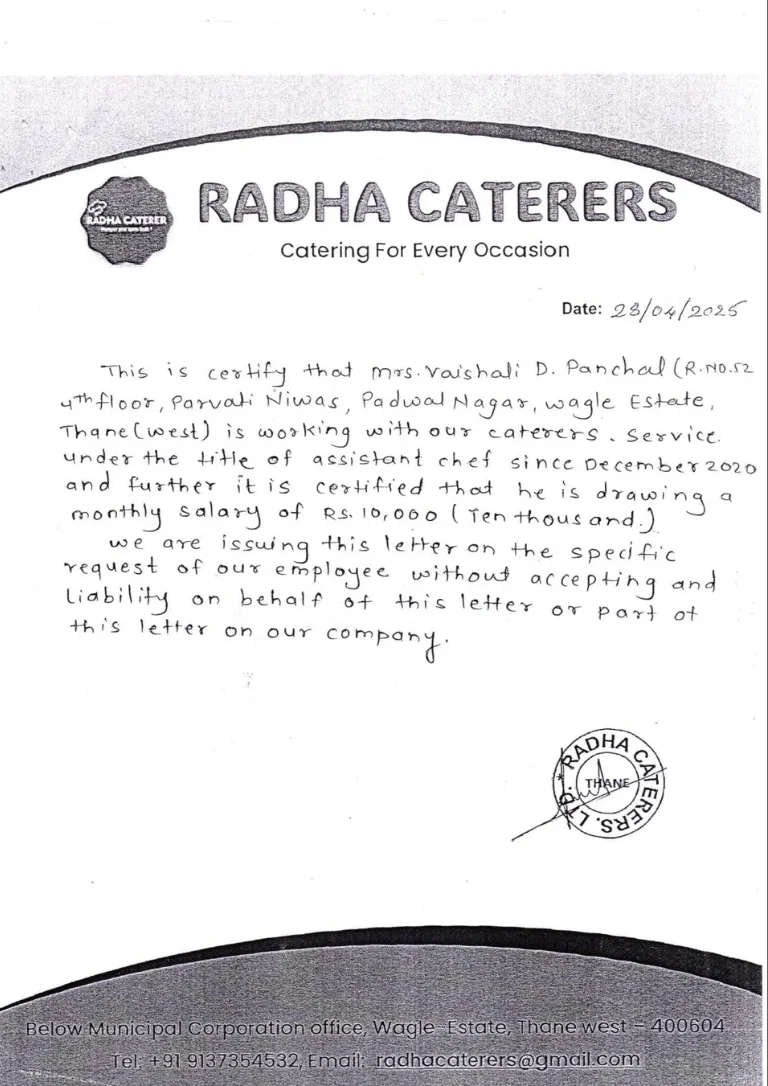 RADHA CATERER
RADHA CATERERS
Catering For Every Occasion
Date: 23/04/2025
This is certify that Mrs. Vaishali D. Panchal (R.NO.52
4th floor, Parvati Niwas, Padwal Nagar, wagle Estate,
Thane (west) is working with our caterers. Service.
under the title of assistant chef since December 2020
and further it is certified that he is drawing a
monthly salary of Rs. 10,000 (Ten thousand.)
we are issuing this letter on the specific
request of our employee without accepting and
Liability on behalf of this letter or part of
this letter on our company.
* RADHA CATERERS. LTD.
THANE
Below Municipal Corporation office, Wagle Estate, Thane west – 400604
Tel: +91 9137354532, Email: radhacaterers@gmail.com